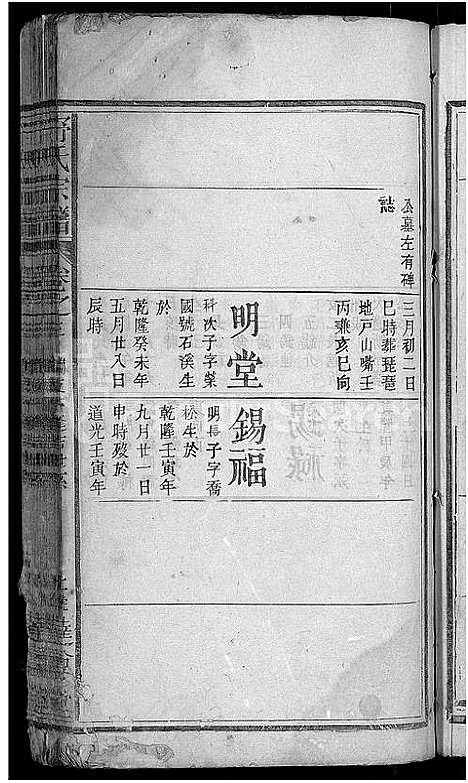 公墓左有碑
誌
三月初二日
巳時葬琵琶
地戸山嘴壬
丙兼亥巳向
明堂
科次子字榮
國號石溪生
於
乾隆癸未年
五月廿八日
辰時
錫福
明長子字喬
松生於
乾隆壬寅年
九月廿一日
申時殁於
道光壬寅年
舒氏宗譜
卷之